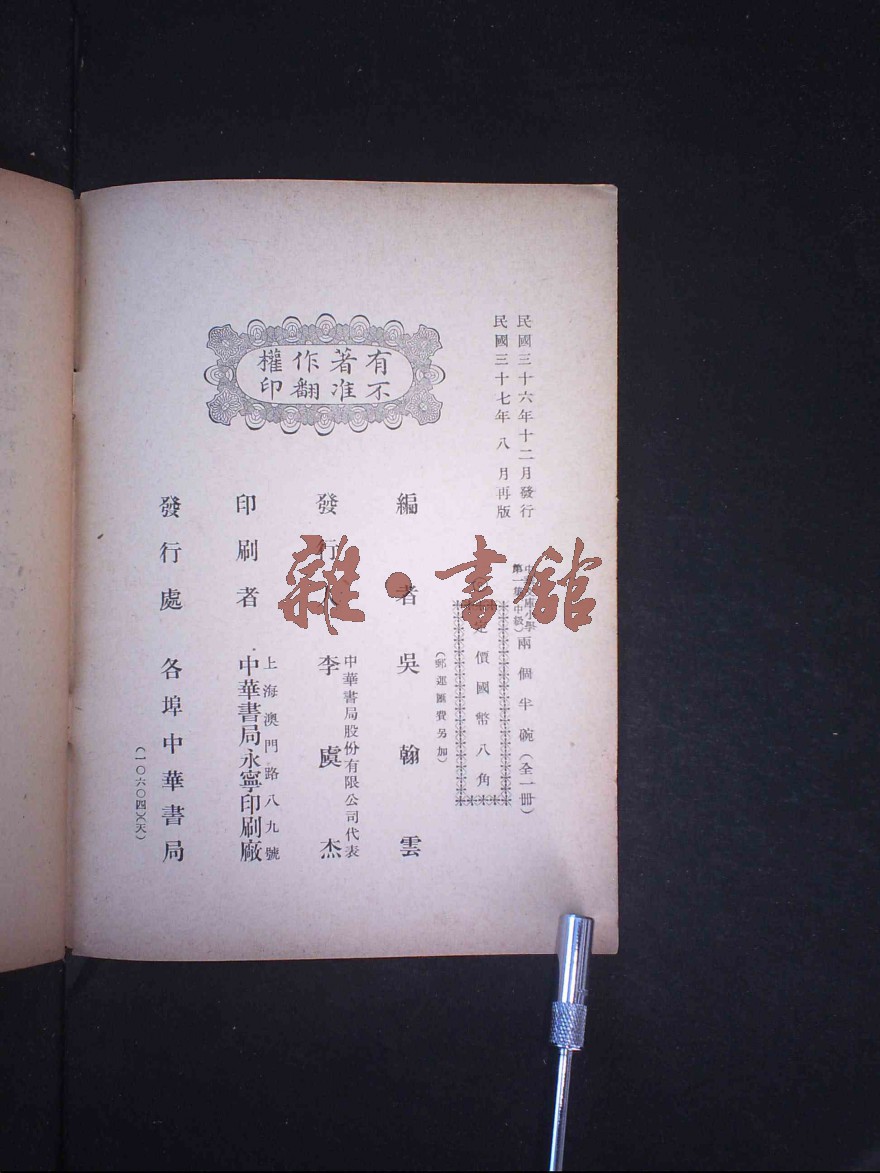 民國三十六年十二月發行
民國三十七年八月再版
中華文庫小學
第一集(中級)
兩個半碗(全一冊)
定價國幣八角
(郵運匯費另加)
有著作權
不准翻印
編者 吳翰雲
發行人 李虞杰
中華書局股份有限公司代表
印刷者 中華書局永寧印刷廠
上海澳門路八九號
發行處 各埠中華書局
(一〇六〇四)(天)
雜·書館